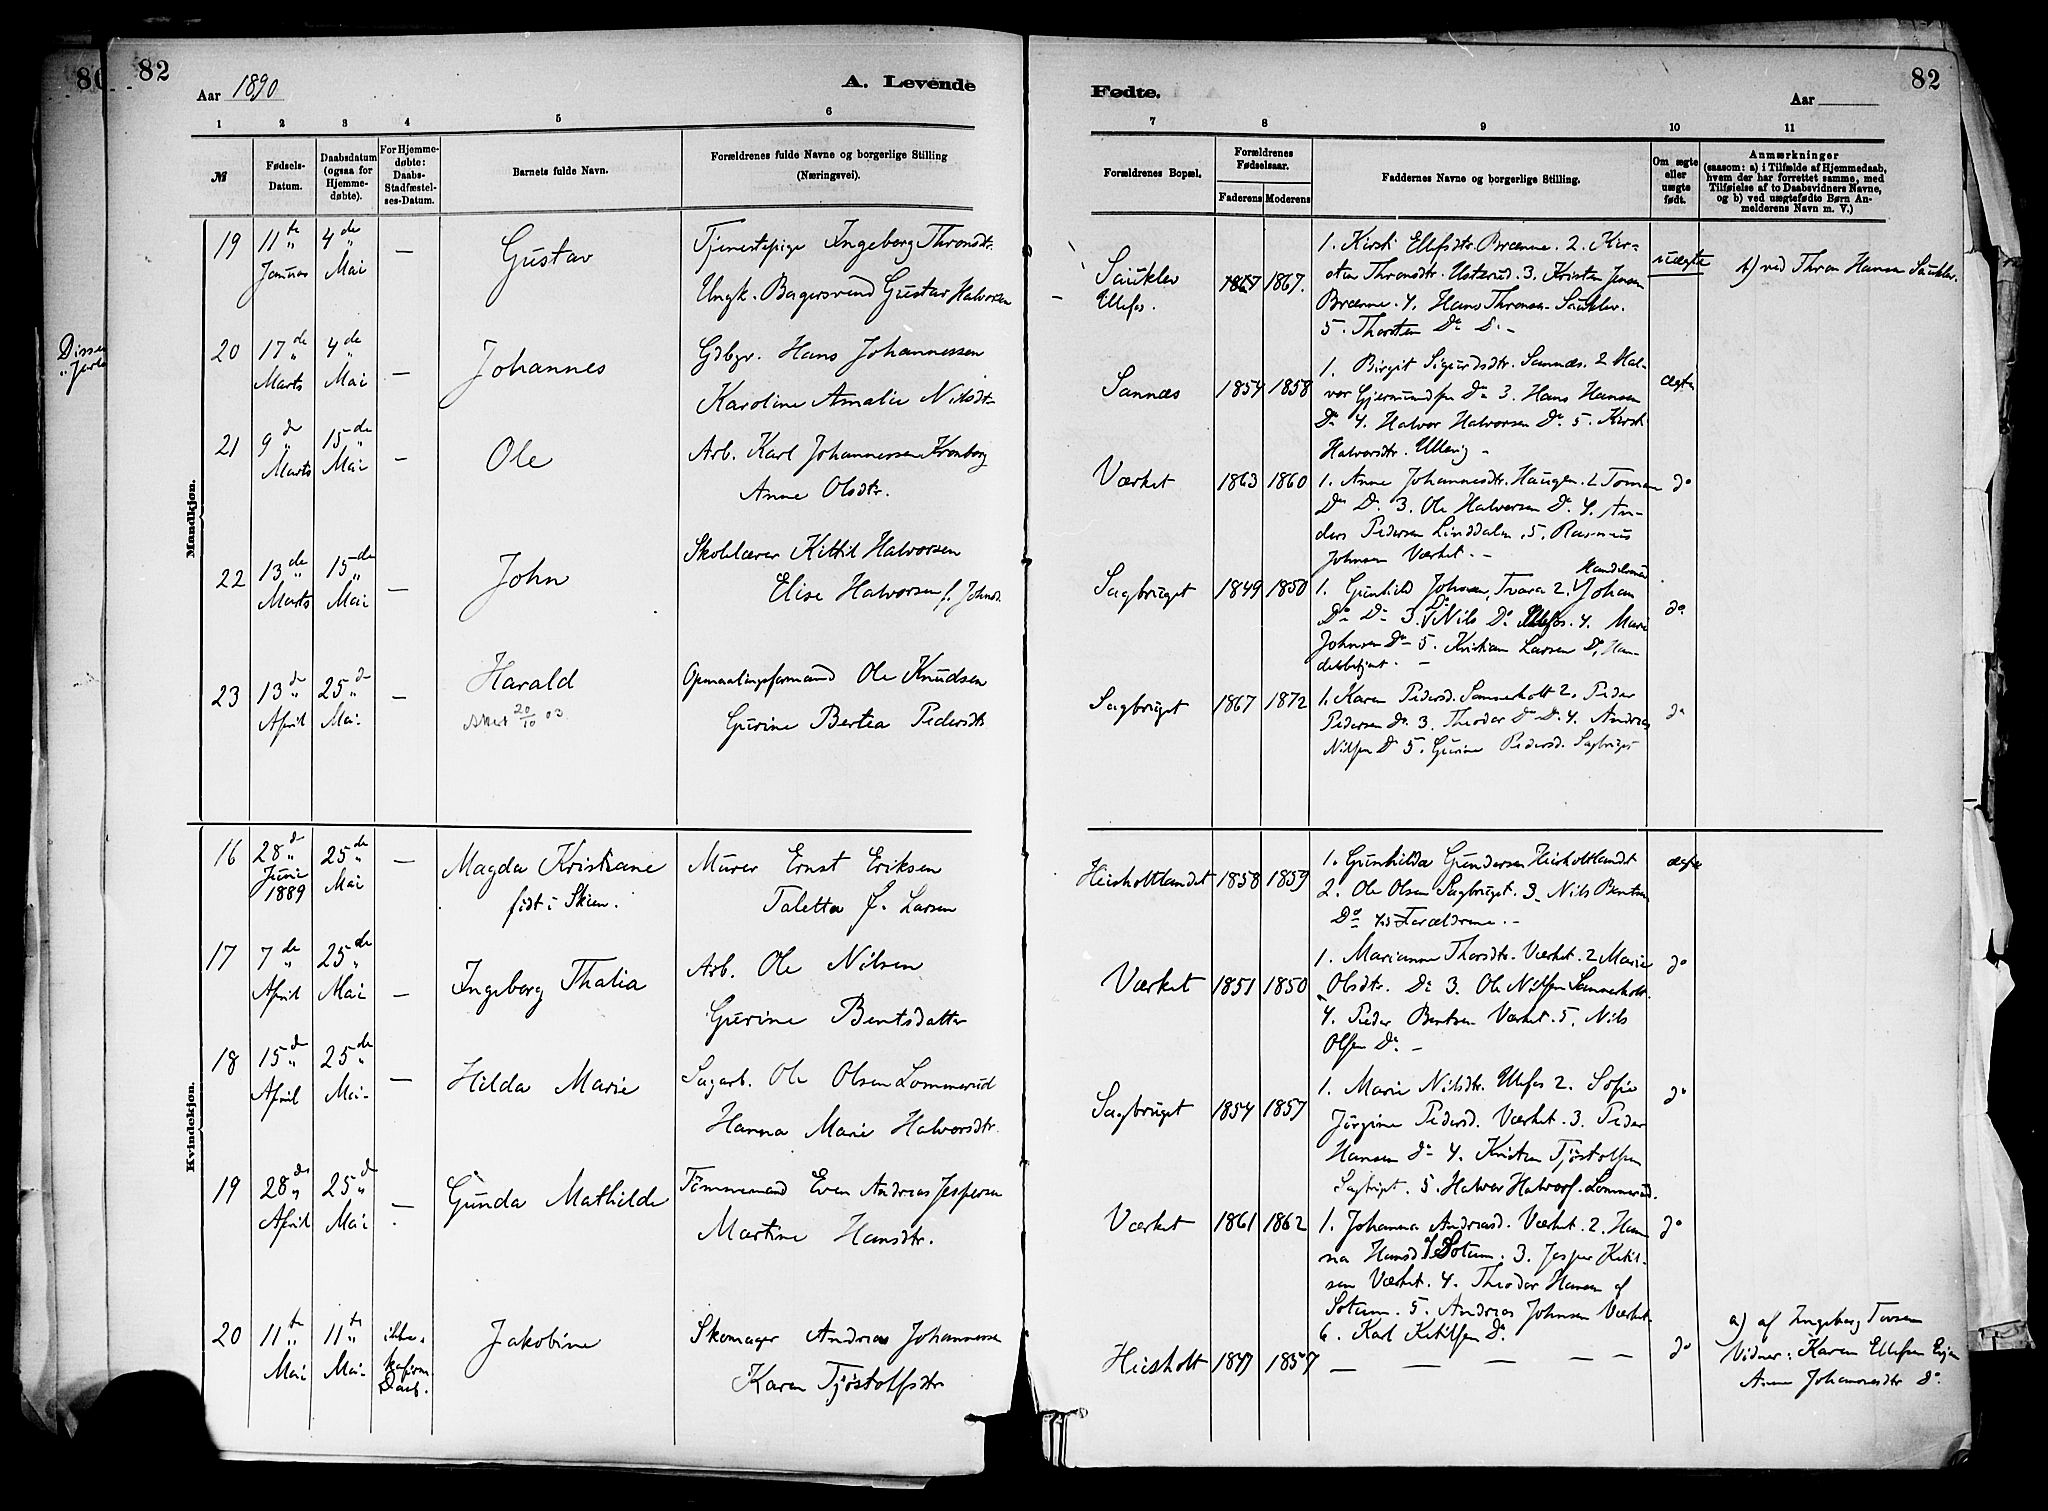 80
82
Aar 1890
A. Levende
Fødte.
82
Aar
1 2 3 4 5 6
7 8 9 10 11
№
Fødsels-
Datum.
Daabsdatum
(ogsaa for
Hjemme-
døbte).
For Hjemme-
døbte:
Daabs-
Stadfæstel-
ses-Datum.
Barnets fulde Navn.
Forældrenes fulde Navne og borgerlige Stilling
(Næringsvei).
Forældrenes Bopæl.
Forældrenes
Fødselsaar.
Faderens Moderens
Faddernes Navne og borgerlige Stilling.
Om ægte
eller
uægte
født.
Anmærkninger
(saasom: a) i Tilfælde af Hjemmedaab,
hvem der har forrettet samme, med
Tilføielse af to Daabsvidners Navne,
og b) ved uægtefødte Børn An-
melderens Navn m. V.)
Mandkjøn.
19
11te
Januar
4de
Mai
—
Gustav
Tjenestepige Ingeborg Thronsdtr.
Ungk. Bagersvend Gustav Halvorsen
Sauklev
Ulefos.
1867 1867.
1. Kirsti Ellefsdtr. Brænne. 2. Kir-
sten Thronsdtr. Usterud. 3. Kristen Jensen
Brænne. 4. Hans Thronsen Sauklev.
5. Thorsten Do Do —
uægte
b) ved Thron Hansen Sauklev.
20
17de
Marts
4de
Mai
—
Johannes
Gdbgr. Hans Johannessen
Karoline Amalie Nilsdtr
Sannæs
1854 1858
1. Birgit Sigurdsdtr. Sannæs. 2 Hal-
vor Gjermundsen Do 3. Hans Hansen
Do 4. Halvor Halvorsen Do 5. Kirsti
Halvorsdtr. Ulleng —
ægte
21
9d
Marts
15de
Mai
—
Ole
Arb. Karl Johannessen Kronborg
Anne Olsdtr.
Værket
1863 1860
1. Anne Johannesdtr. Haugen. 2 Toman
Do Do 3. Ole Halvorsen Do 4. An-
ders Pedersen Linddalen. 5. Rasmus
Johnsen Værket. —
do
22
13de
Marts
15de
Mai
—
John
Skolelærer Kittil Halvorsen
Elise Halvorsen f. Johnsd.
Sagbruget
1849 1850
Handelsmd
1. Gunhild Johnsen, Tvara 2. Johan
Do Do 3. Nils Do Ulefos. 4. Marie
Johnsen Do 5. Kristian Larsen Do, Han-
delsbetjent. —
do
23
13d
April
25d
Mai
—
Harald
Attest 20/10 03
Opmaalingsformand Ole Knudsen
Gurine Bertea Pedersdtr
Sagbruget
1867 1872
1. Karen Pedersd. Sannerholt 2. Peder
Pedersen Do 3. Theodor Do Do 4. Andreas
Nilsen Do 5. Gurine Pedersd. Sagbruget
do
Kvindekjøn.
16
28d
Juni
1889
25de
Mai
—
Magda Kristiane
født i Skien.
Murer Ernst Eriksen
Taletta f. Larsen
Heisholtlandet
1858 1859
1. Gunhilda Gundersen Heisholtlandet
2. Ole Olsen Sagbruget. 3. Nils Bentsen
Do Forældrene. —
ægte
17
7de
April
25de
Mai
—
Ingeborg Thalia
Arb. Ole Nilsen
Gurine Bentsdatter
Værket
1851 1850
1. Marianne Thorsdtr. Værket. 2 Marie
Olsdtr. Do 3. Ole Nilsen Sannerholt.
4. Peder Bentsen Værket. 5. Nils
Olsen Do —
do
18
15d
April
25de
Mai
—
Hilda Marie
Sagarb. Ole Olsen Lommerud
Hanna Marie Halvorsdtr.
Sagbruget
1854 1857
1. Marie Nilsdtr. Ulefos 2. Sofie
Jørgine Pedersd. Værket. 3. Peder
Hansen Do 4. Kristen Tjøstolsen
Sagbruget. 5. Halvor Halvors. Lommerud.
do
19
28de
April
25d
Mai
—
Gunda Mathilde
Tømmermand Even Andreas Jespersen
Martine Hansdtr.
Værket
1861 1862
1. Johanna Andreasd. Værket. 2. Han-
na Hansd Sotum. 3. Jesper Ketil-
sen Værket. 4. Theodor Hansen af
Sotum. 5. Andreas Johnsen Værket.
6. Karl Ketilsen Do.
do
20
11te
Mai
11te
Mai
ikke
Daab.
Jakobine
Skomager Andreas Johannessen
Karen Tjøstolfsdtr
Heisholt
1847 1857
— — — — —
do
a) af Ingeborg Tovsen
Vidner: Karen Ellefsen
Anne Johannesdtr Do.